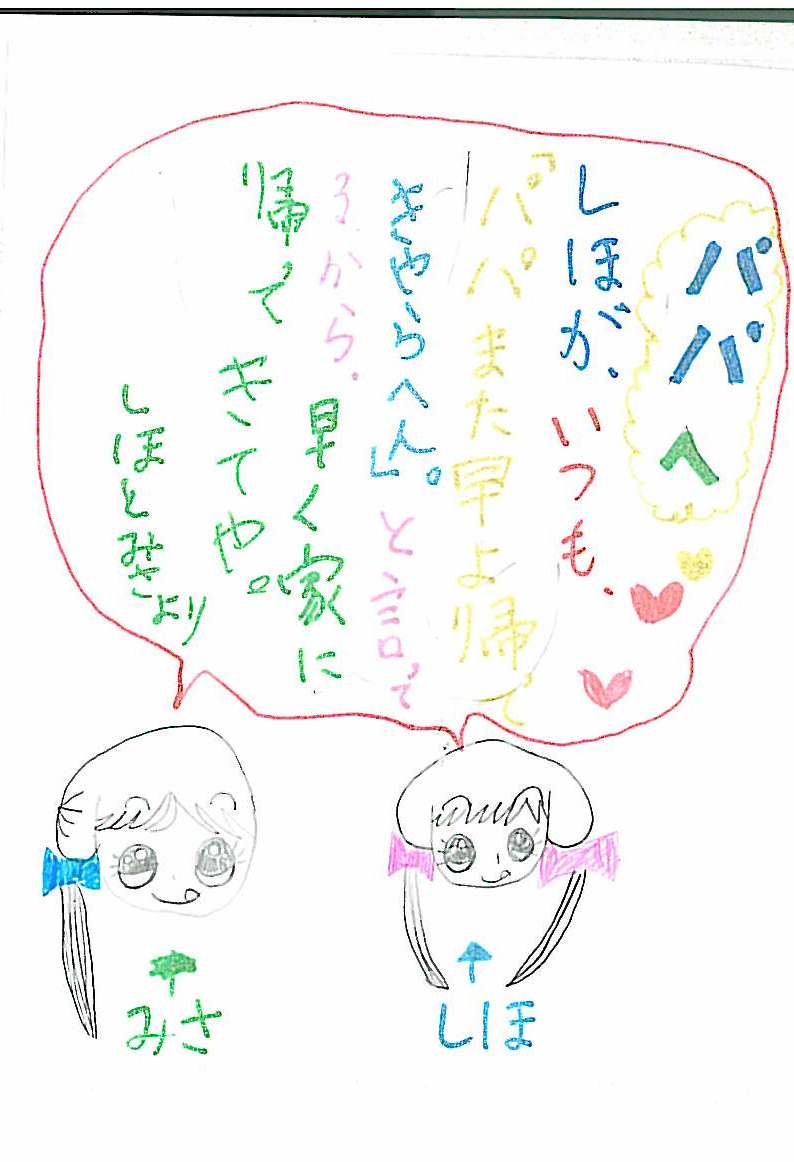 パパへ
しほが、いつも、
「パパまた早よ帰って
きやらへん。」と言って
るから、早く家に
帰ってきてや。
しほとみさより
しほ
みさ